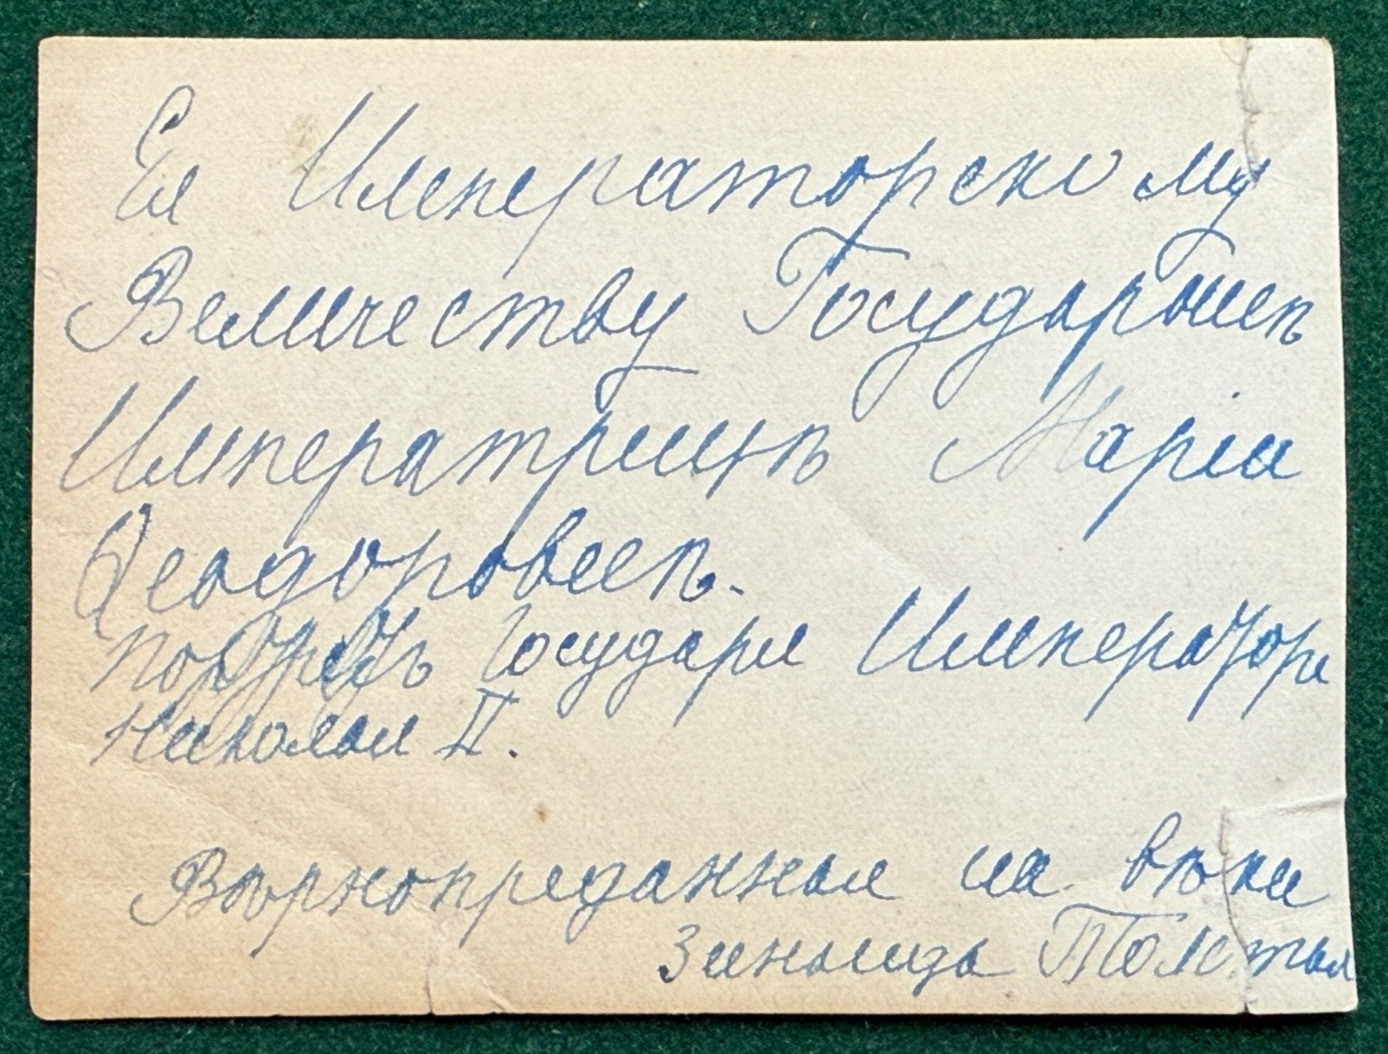 Ея Императорскому
Величеству Государынѣ
Императрицѣ Маріи
Ѳеодоровнѣ.
портретъ Государя Императора
Николая II.
Вѣрнопреданная на вѣки
Зинаида Толстая